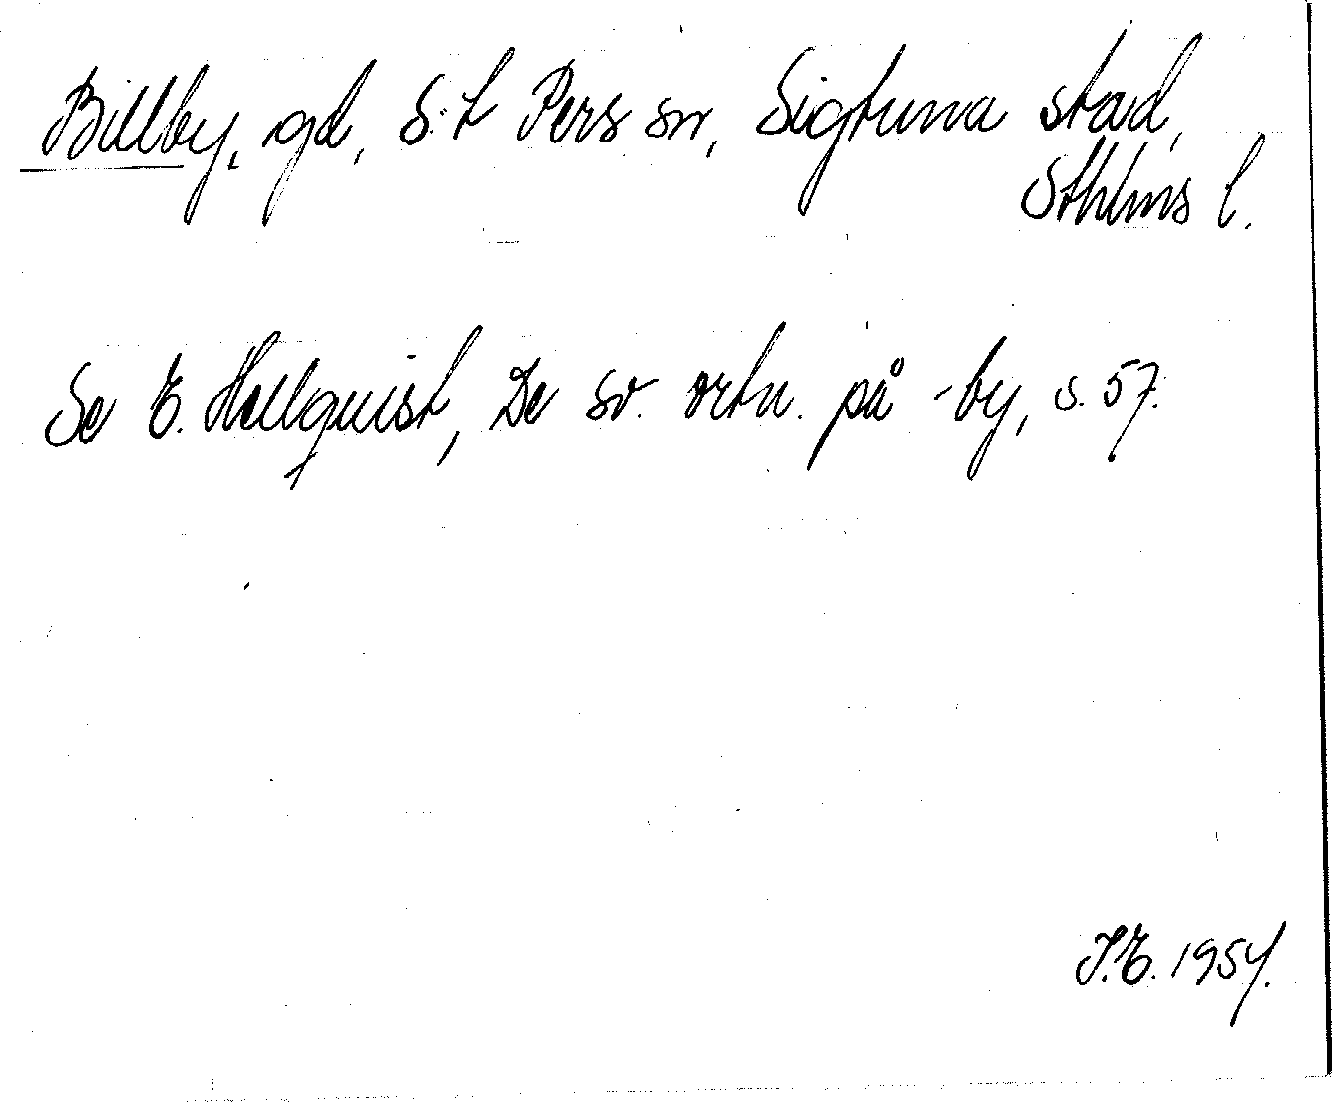 Billby, gd, S:t Pers sn, Sigtuna stad,
Sthlms l.
Se E. Hellquist, De sv. ortn. på -by, s. 57.
I.E. 1954.